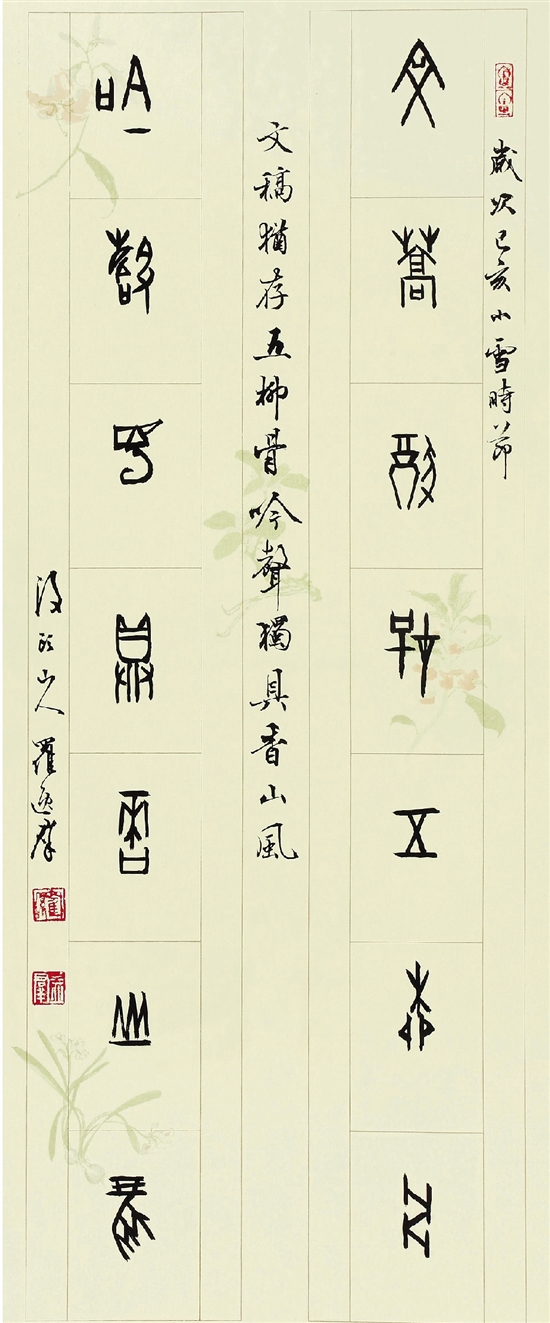 歲次己亥小雪時節
文稿猶存五柳骨
文稿猶存五柳骨吟聲獨具香山風
吟聲獨具香山風
山人羅逸群